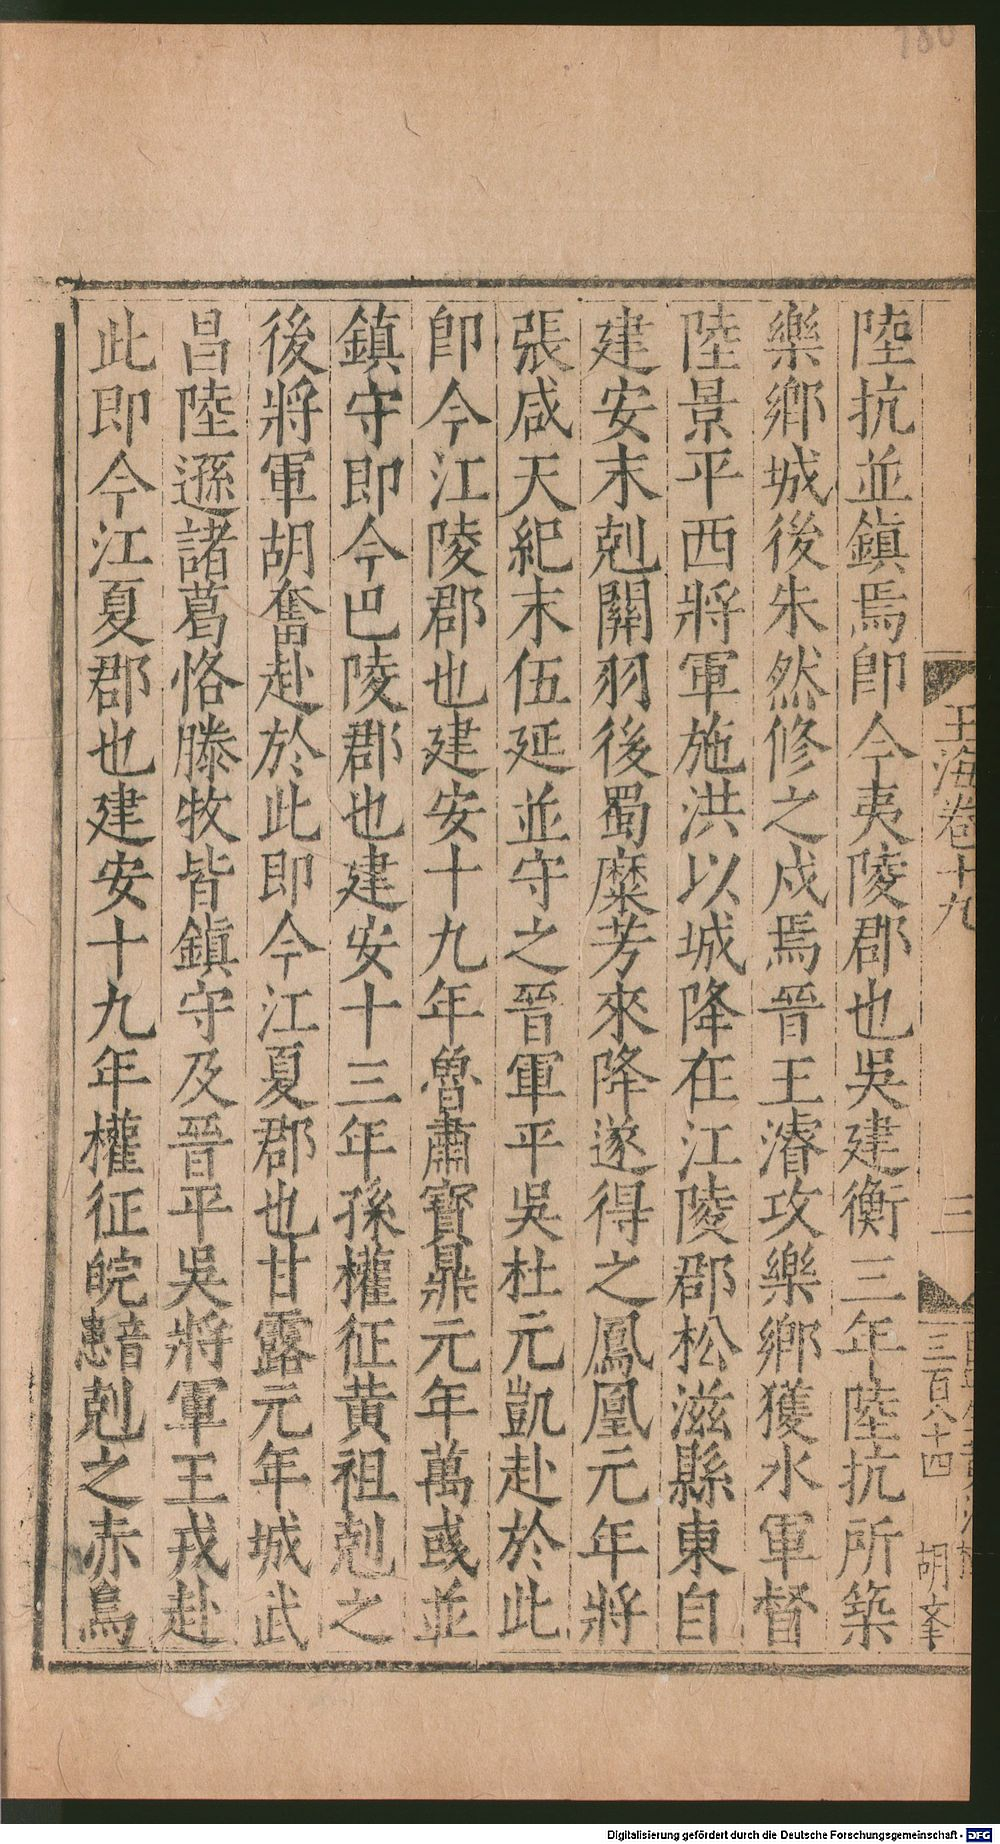 陸抗並鎮焉卽今夷陵郡也吳建衡三年陸抗所築
樂鄉城後朱然修之戍焉晉王濬攻樂鄉獲水軍督
陸景平西將軍施洪以城降在江陵郡松滋縣東自
建安末剋關羽後蜀糜芳來降遂得之鳳凰元年將
張咸天紀末伍延並守之晉軍平吳杜元凱赴於此
卽今江陵郡也建安十九年魯肅寶鼎元年萬彧並
鎮守即今巴陵郡也建安十三年孫權征黃祖剋之
後將軍胡奮赴於此即今江夏郡也甘露元年城武
昌陸遜諸葛恪滕牧皆鎮守及晉平吳將軍王戎赴
此即今江夏郡也建安十九年權征皖𣊓剋之赤烏
玉海卷十九
三
三百八十四
胡𡥉
Digitalisierung gefördert durch die Deutsche Forschungsgemeinschaft - DFG